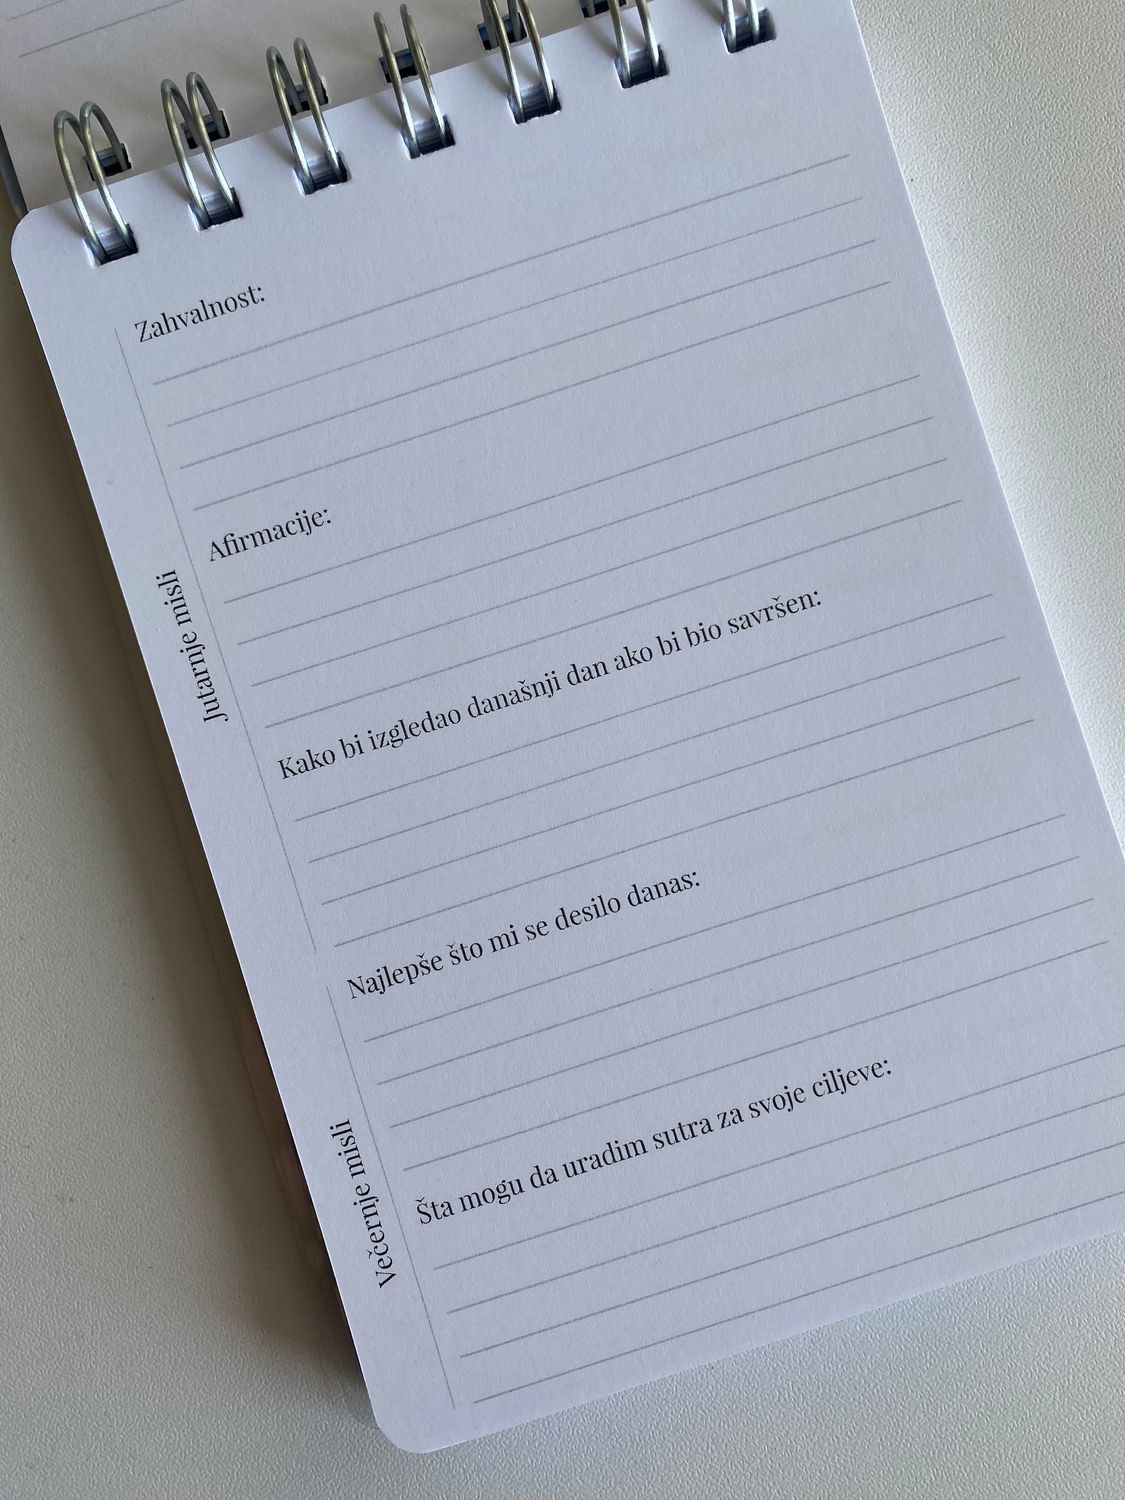 Jutarnje misli
Zahvalnost:
Afirmacije:
Kako bi izgledao današnji dan ako bi bio savršen:
Večernje misli
Najlepše što mi se desilo danas:
Šta mogu da uradim sutra za svoje ciljeve: